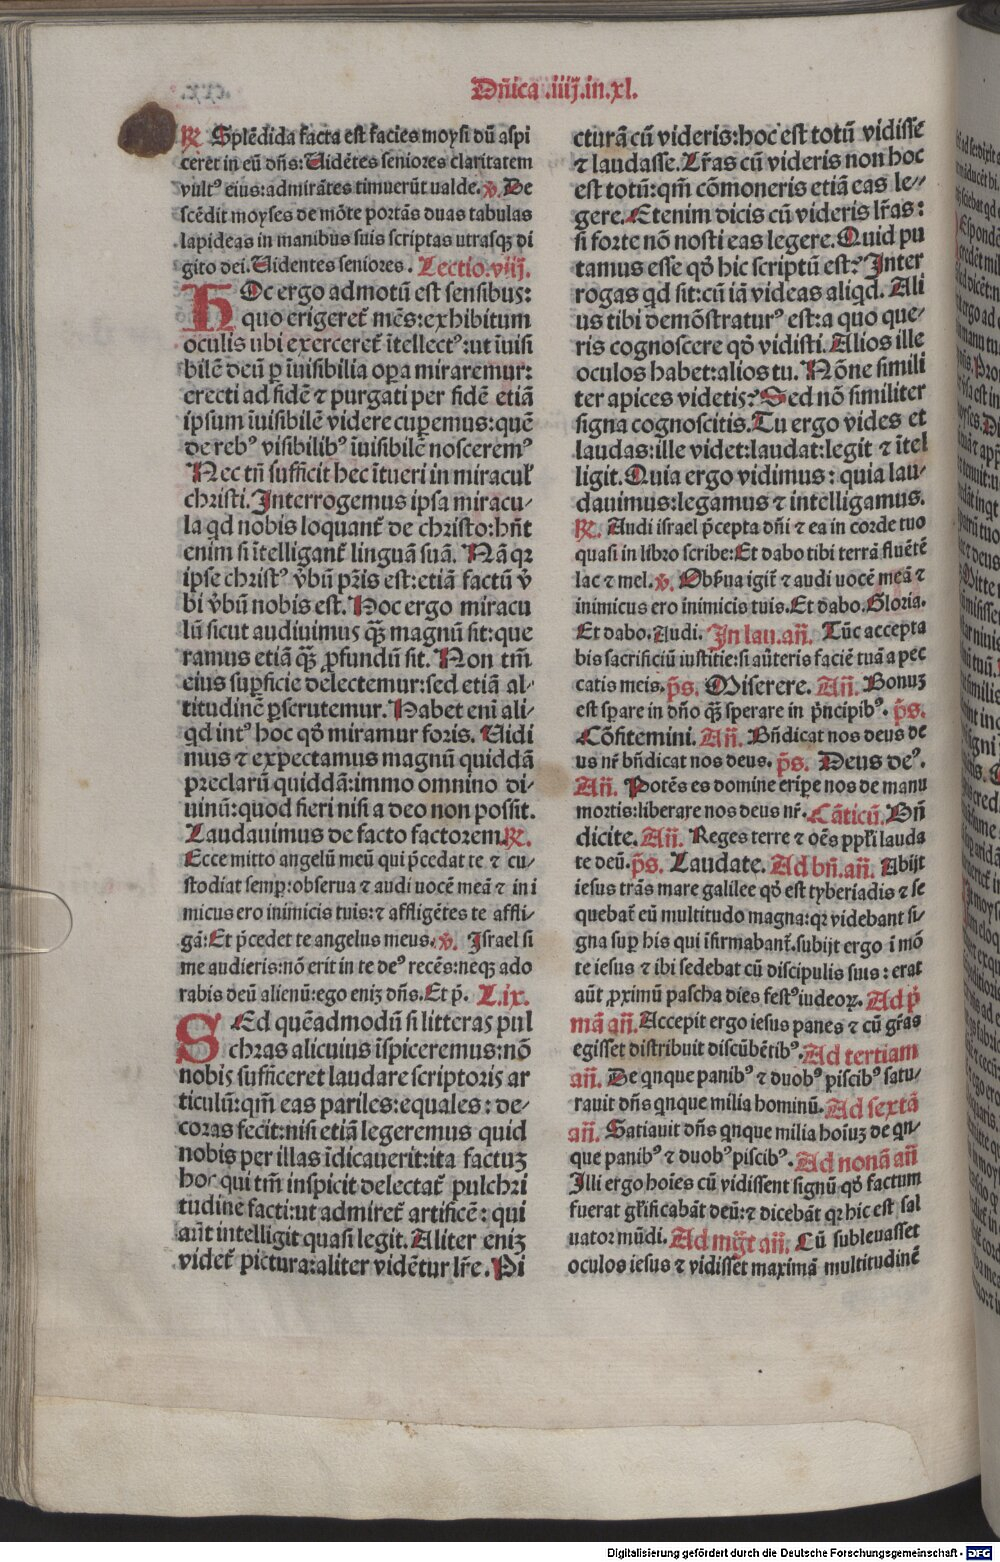 Dñica .iiij.in.xl.
℟ Splēdida facta est facies moysi dū aspi
ceret in eū dñs: Uidētes seniores claritatem
vultꝰ eius: admirātes timuerūt ualde. ℣. De
scēdit moyses de mōte portās duas tabulas
lapideas in manibus suis scriptas utrasqꝫ di
gito dei. Uidentes seniores. Lectio.viij.
HOc ergo admotū est sensibus:
quo erigeret᷑ mēs: exhibitum
oculis ubi exerceret᷑ ītellectꝰ: ut īuisi
bilē deū ꝑ īuisibilia oꝑa miraremur:
erecti ad fidē ⁊ purgati per fidē etiā
ipsum īuisibilē videre cuperemus: quē
de rebꝰ visibilibꝰ īuisibilē nosceremꝰ
Nec tñ sufficit hec ītueri in miracul̕
christi. Interrogemus ipsa miracu⸗
la qd nobis loquant᷑ de christo: hñt
enim si ītelligant᷑ linguā suā. Nā qꝛ
ipse christꝰ v̓bū pr̄is est: etiā factū v̓
bi v̓bū nobis est. Hoc ergo miracu
lū sicut audiuimus qꝫ̄ magnū sit: que
ramus etiā qꝫ̄ ꝓfundū sit. Non tm̄
eius suꝑficie delectemur: sed etiā al⸗
titudinē ꝑscrutemur. Habet eni ali⸗
qd intꝰ hoc qd̓ miramur foris. Uidi
mus ⁊ expectamus magnū quiddā
preclarū quiddā: immo omnino di⸗
uinū: quod fieri nisi a deo non possit.
Laudauimus de facto factorem. ℟.
Ecce mitto angelū meū qui p̄cedat te ⁊ cu⸗
stodiat semꝑ: obserua ⁊ audi uocē meā ⁊ ini
micus ero inimicis tuis: ⁊ affligētes te affli⸗
gā: Et p̄cedet te angelus meus. ℣. Israel si
me audieris: nō erit in te deꝰ recēs: neqꝫ ado
rabis deū alienū: ego eniꝫ dñs. Et p̄. L.ix.
SEd quēadmodū si litteras pul
chras alicuius īspiceremus: nō
nobis sufficeret laudare scriptoris ar
ticulū: qm̄ eas pariles: equales: de⸗
coras fecit: nisi etiā legeremus quid
nobis per illas īdicauerit: ita factuꝫ
hoc qui tm̄ inspicit delectat᷑ pulchri
tudine facti: ut admiret᷑ artificē: qui
aūt intelligit quasi legit. Aliter eniꝫ
videt᷑ pictura: aliter vidētur lr̄e. Pi
cturā cū videris: hoc est totū vidisse
⁊ laudasse. Lr̄as cū videris non hoc
est totū: qm̄ cōmoneris etiā eas le⸗
gere. Etenim dicis cū videris lr̄as:
si forte nō nosti eas legere. Quid pu
tamus esse qd̓ hic scriptū est? Inter
rogas qd sit: cū iā videas aliqd. Ali
us tibi demōstraturꝰ est: a quo que⸗
ris cognoscere qd̓ vidisti. Alios ille
oculos habet: alios tu. Nōne simili
ter apices videtis? Sed nō similiter
signa cognoscitis. Tu ergo vides et
laudas: ille videt: laudat: legit ⁊ ītel
ligit. Quia ergo vidimus: quia lau⸗
dauimus: legamus ⁊ intelligamus.
℟. Audi israel p̄cepta dñi ⁊ ea in corde tuo
quasi in libro scribe: Et dabo tibi terrā fluētē
lac ⁊ mel. ℣. Obẜua igit᷑ ⁊ audi uocē meā ⁊
inimicus ero inimicis tuis. Et dabo. Gloria.
Et dabo. Audi. In lau. añ. Tūc accepta
bis sacrificiū iustitie: si aūteris faciē tuā a pec
catis meis. p̄s. Miserere. Añ. Bonuꝫ
est sperare in dño qꝫ̄ sperare in p̄ncipibꝰ. p̄s.
Cōfitemini. Añ. Bñdicat nos deus de
us nr̄ bñdicat nos deus. p̄s. Deus deꝰ.
Añ. Potēs es domine eriꝑe nos de manu
mortis: liberare nos deus nr̄. Cāticū. Bñ
dicite. Añ. Reges terre ⁊ oēs ppl̓i lauda
te deū. p̄s. Laudate. Ad bñ. añ. Abijt
iesus trās mare galilee qd̓ est tyberiadis ⁊ se
quebat᷑ eū multitudo magna: qꝛ videbant si⸗
gna suꝑ his qui īfirmabant᷑. subijt ergo ī mō
te iesus ⁊ ibi sedebat cū discipulis suis: erat
aūt ꝓximū pascha dies festꝰ iudeoꝝ. Ad p̄
mā añ. Accepit ergo iesus panes ⁊ cū gr̄as
egisset distribuit discūbētibꝰ. Ad tertiam
añ. De qnque panibꝰ ⁊ duobꝰ piscibꝰ satu⸗
rauit dñs qnque milia hominū. Ad sextā
añ. Satiauit dñs qnque milia hoīuꝫ de qn⸗
que panibꝰ ⁊ duobꝰ piscibꝰ. Ad nonā añ
Illi ergo hoīes cū vidissent signū qd̓ factum
fuerat gl̓ificabāt deū: ⁊ dicebāt qꝛ hic est sal
uator mūdi. Ad mg̅t añ. Cū subleuasset
oculos iesus ⁊ vidisset maximā multitudinē
Digitalisierung gefördert durch die Deutsche Forschungsgemeinschaft - DFG